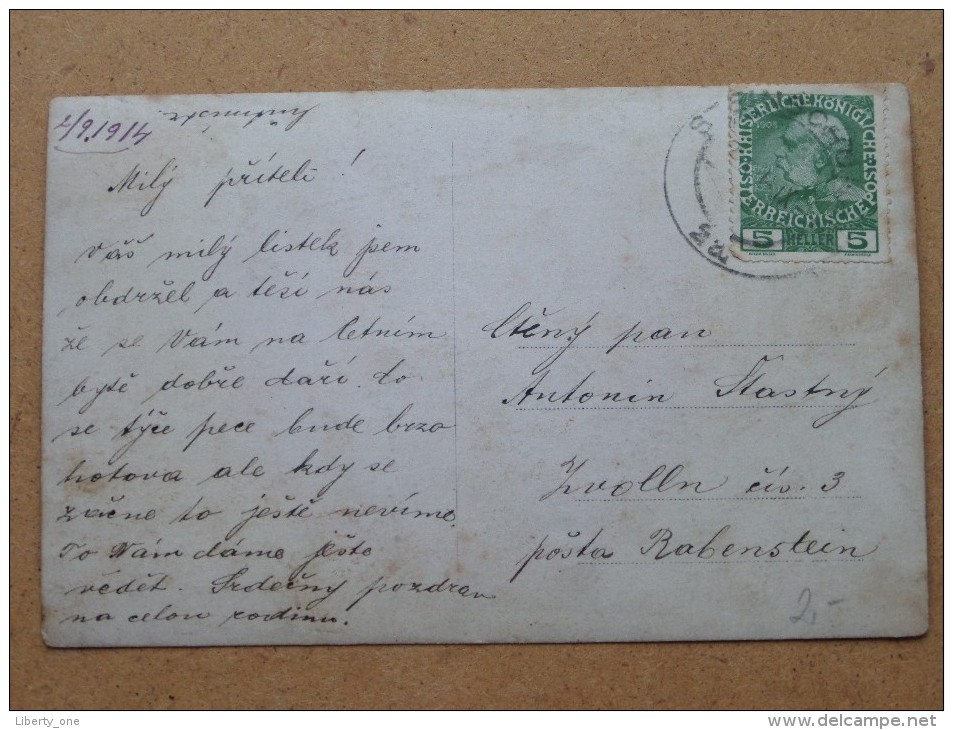 2/9.1914
Milý příteli!
Váš milý lístek jsem
obdržel a těší nás
že se Vám na letním
bytě dobře daří. Co
se týče pece bude brzo
hotova ale kdy se
začne to ještě nevíme.
To Vám dáme ješte
vědět. Srdečný pozdrav
na celou rodinu.
ÖSTERREICHISCHE POST
KAISERLICHE KÖNIGLICHE
1908
5 HELLER 5
Ctěný pan
Antonín Šťastný
Zvolln čís. 3
pošta Rabenstein
2,-
Liberty_one
www.delcampe.net